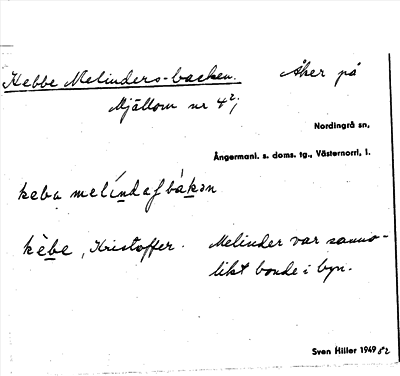 Kebbe Melinders-backen. Åker på
Mjällom nr 4²;
Nordingrå sn,
Ångermanl. s. doms. tg., Västernorrl. l.
keba melíndasbákən
kèbe, Kristoffer. Melinder var sanno-
likt bonde i byn.
Sven Hiller 1949 52